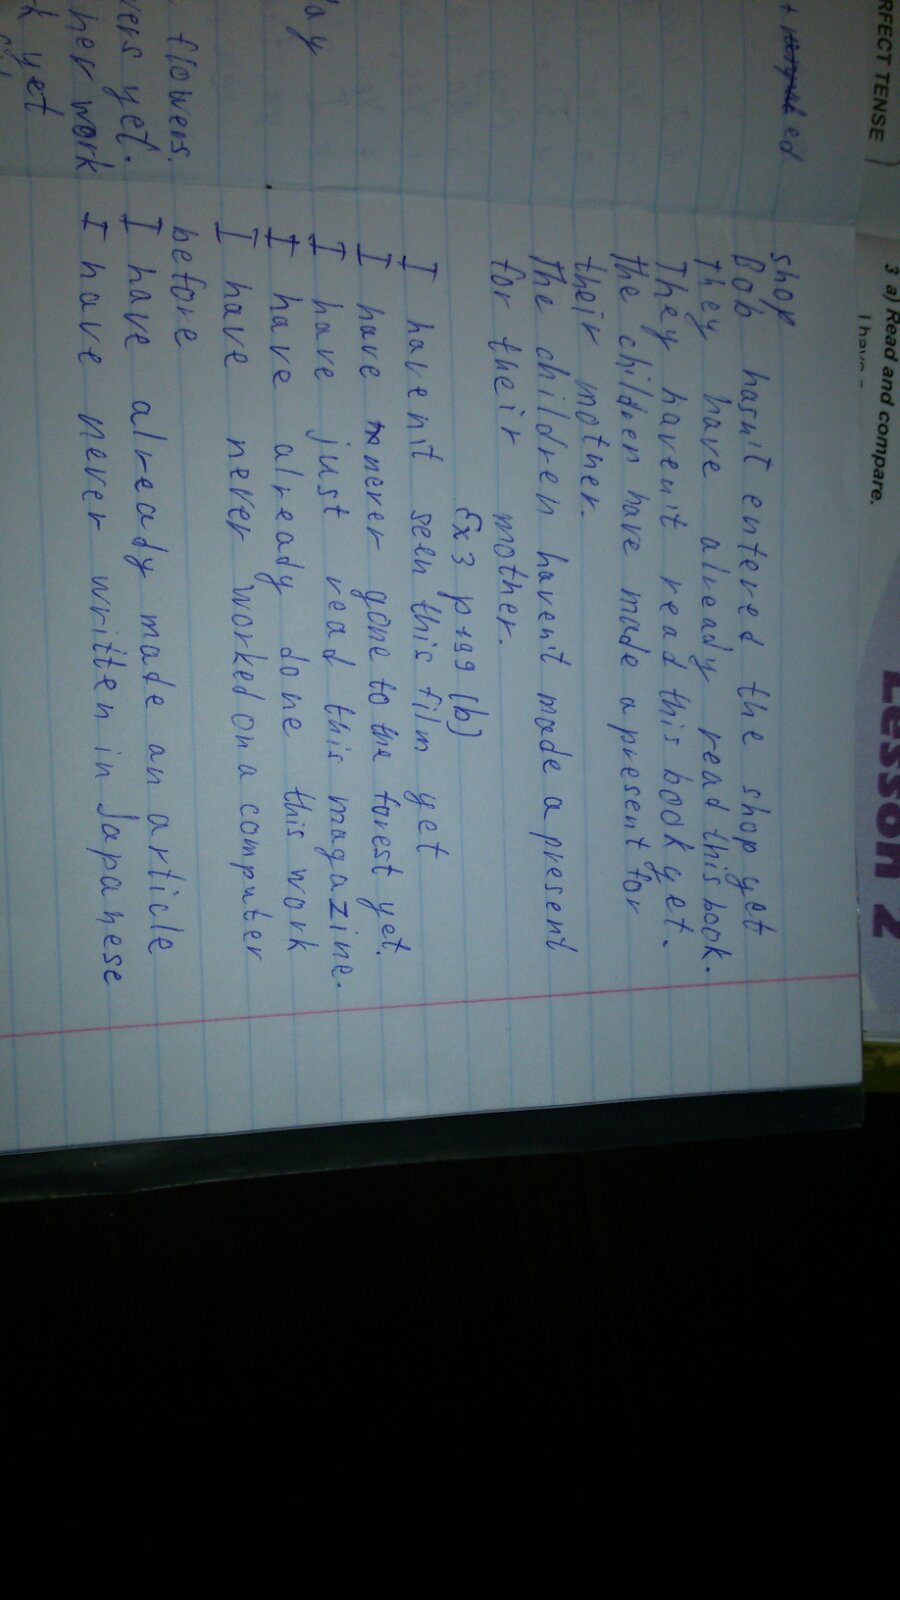 RFECT TENSE
3 a) Read and compare.
Lesson 2
ed
ay
flowers.
vers yet.
her work
yet
shop
Bob hasn't entered the shop yet
They have already read this book.
They haven't read this book yet.
the children have made a present for
their mother.
The children haven't made a present
for their mother.
Ex 3 p 199 (b)
I haven't seen this film yet
I have never gone to the forest yet.
I have just read this magazine.
I have already done this work
I have never worked on a computer
before
I have already made an article
I have never written in Japanese